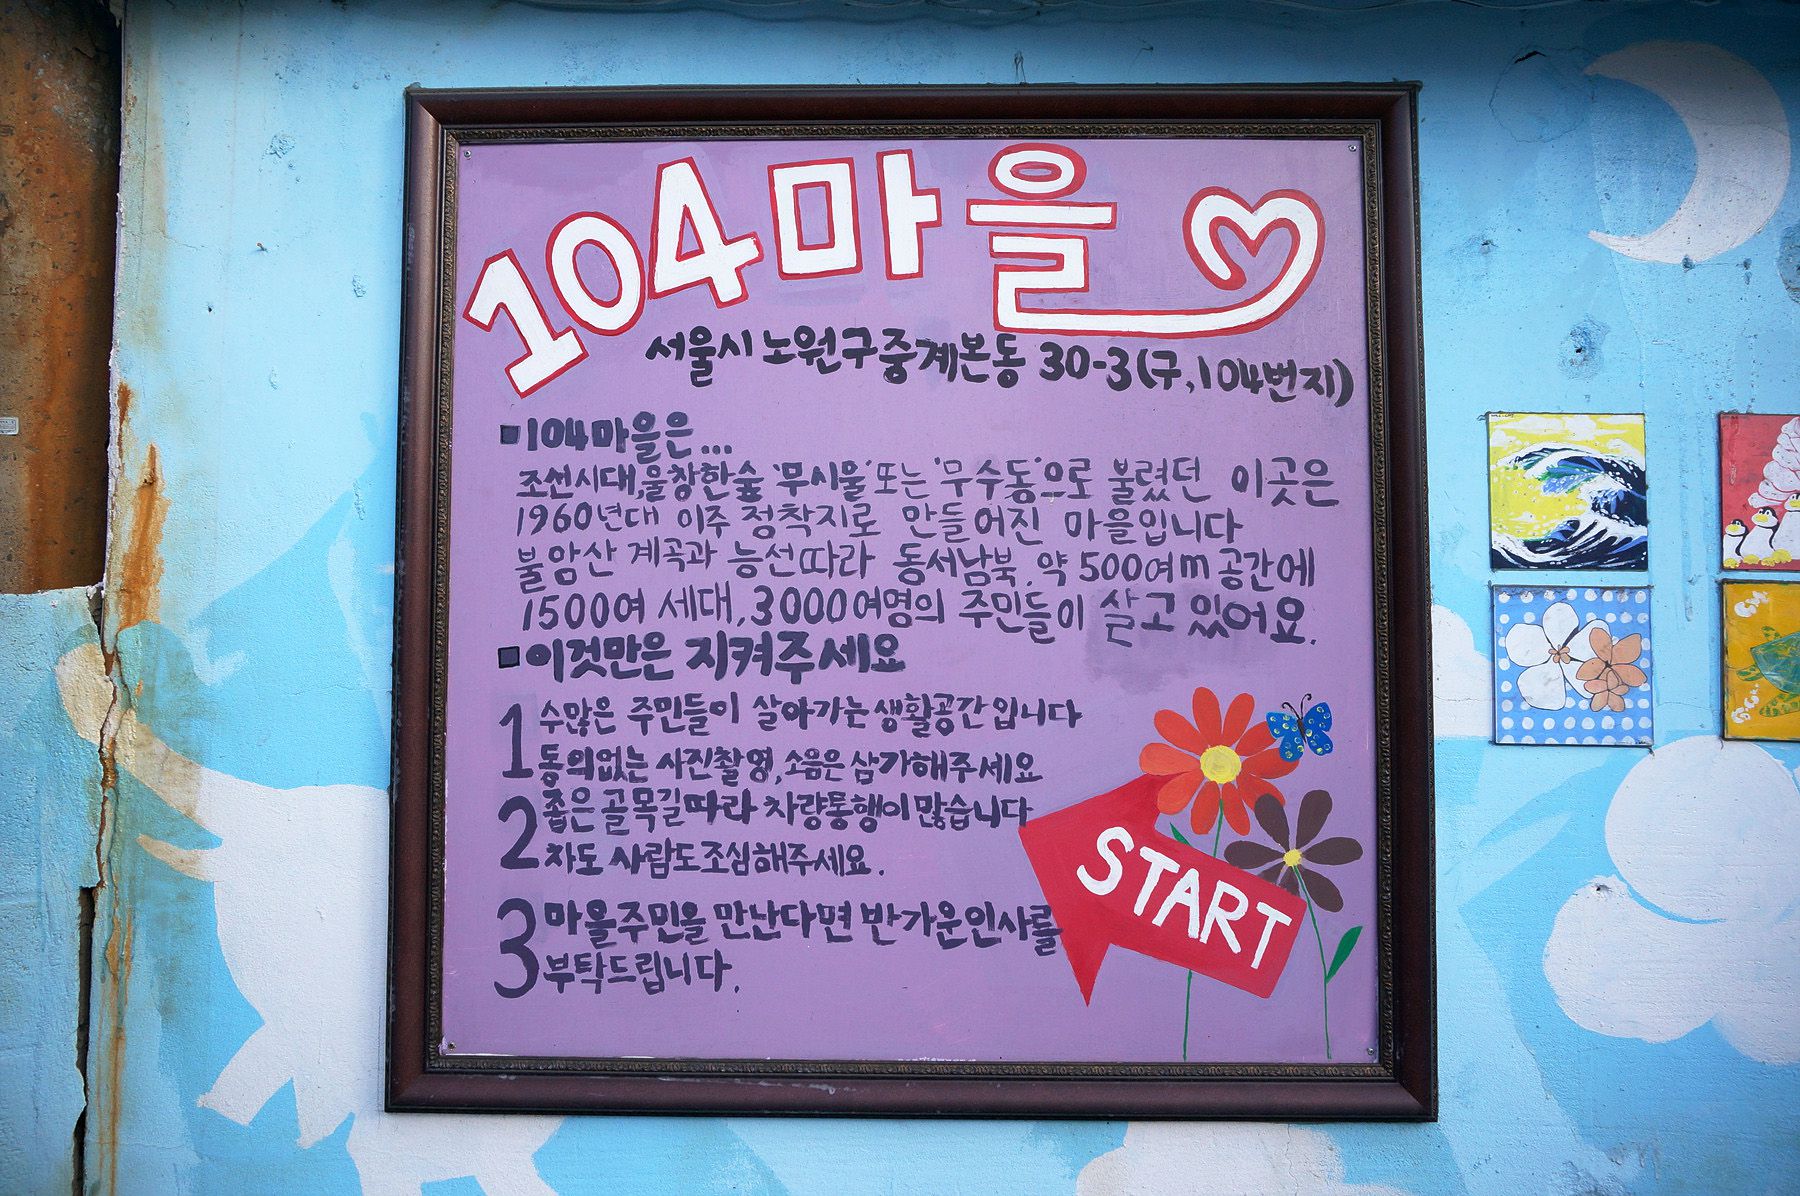 104마을
서울시 노원구 중계본동 30-3(구,104번지)
■104마을은...
조선시대,울창한숲 '무시울'또는 '무수동'으로 불렸던 이곳은
1960년대 이주 정착지로 만들어진 마을입니다
불암산 계곡과 능선따라 동서남북, 약 500여m 공간에
1500여 세대, 3000여명의 주민들이 살고 있어요.
■이것만은 지켜주세요
1 수많은 주민들이 살아가는 생활공간입니다
동의없는 사진촬영,소음은 삼가해주세요
2 좁은 골목길따라 차량통행이 많습니다
차도 사람도 조심해주세요.
3 마을주민을 만난다면 반가운인사를
부탁드립니다.
START